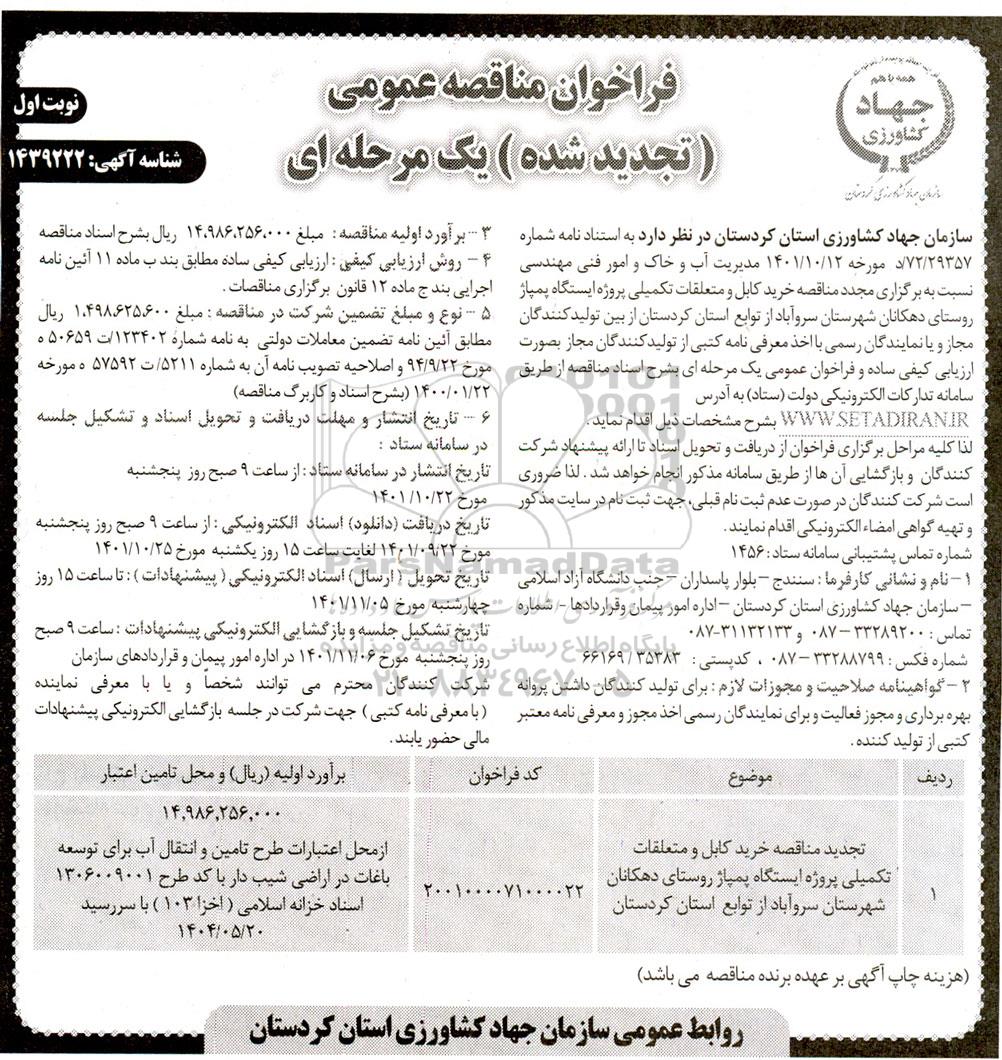 همه با هم
جهاد
کشاورزی
سازمان جهاد کشاورزی کردستان
فراخوان مناقصه عمومی
(تجدید شده) یک مرحله ای
نوبت اول
شناسه آگهی: ۱۴۳۹۲۲۲
سازمان جهاد کشاورزی استان کردستان در نظر دارد به استناد نامه شماره
۷۲/۲۹۳۵۷/د مورخه ۱۴۰۱/۱۰/۱۲ مدیریت آب و خاک و امور فنی مهندسی
نسبت به برگزاری مجدد مناقصه خرید کابل و متعلقات تکمیلی پروژه ایستگاه پمپاژ
روستای دهکانان شهرستان سروآباد از توابع استان کردستان از بین تولیدکنندگان
مجاز و یا نمایندگان رسمی با اخذ معرفی نامه کتبی از تولیدکنندگان مجاز بصورت
ارزیابی کیفی ساده و فراخوان عمومی یک مرحله ای بشرح اسناد مناقصه از طریق
سامانه تدارکات الکترونیکی دولت (ستاد) به آدرس
WWW.SETADIRAN.IR بشرح مشخصات ذیل اقدام نماید.
لذا کلیه مراحل برگزاری فراخوان از دریافت و تحویل اسناد تا ارائه پیشنهاد شرکت
کنندگان و بازگشایی آن ها از طریق سامانه مذکور انجام خواهد شد . لذا ضروری
است شرکت کنندگان در صورت عدم ثبت نام قبلی، جهت ثبت نام در سایت مذکور
و تهیه گواهی امضاء الکترونیکی اقدام نمایند.
شماره تماس پشتیبانی سامانه ستاد : ۱۴۵۶
۱- نام و نشانی کارفرما : سنندج – بلوار پاسداران – جنب دانشگاه آزاد اسلامی
– سازمان جهاد کشاورزی استان کردستان – اداره امور پیمان وقراردادها - شماره
تماس : ۳۳۲۸۹۲۰۰ – ۰۸۷ و ۳۱۱۳۲۱۳۳-۰۸۷
شماره فکس : ۳۳۲۸۸۷۹۹ – ۰۸۷ ، کدپستی : ۳۵۲۸۳ / ۶۶۱۶۹
۲- گواهینامه صلاحیت و مجوزات لازم : برای تولید کنندگان داشتن پروانه
بهره برداری و مجوز فعالیت و برای نمایندگان رسمی اخذ مجوز و معرفی نامه معتبر
کتبی از تولید کننده .
۳- برآورد اولیه مناقصه : مبلغ ۱۴،۹۸۶،۲۵۶،۰۰۰ ریال بشرح اسناد مناقصه
۴- روش ارزیابی کیفی : ارزیابی کیفی ساده مطابق بند ب ماده ۱۱ آئین نامه
اجرایی بند ج ماده ۱۲ قانون برگزاری مناقصات .
۵- نوع و مبلغ تضمین شرکت در مناقصه : مبلغ ۱،۴۹۸،۶۲۵،۶۰۰ ریال
مطابق آئین نامه تضمین معاملات دولتی به نامه شماره ۱۲۳۴۰۲/ت ۵۰۶۵۹ ه
مورخ ۹۴/۹/۲۲ و اصلاحیه تصویب نامه آن به شماره ۵۲۱۱/ت ۵۷۵۹۲ ه مورخه
۱۴۰۰/۰۱/۲۲ (بشرح اسناد و کاربرگ مناقصه)
۶- تاریخ انتشار و مهلت دریافت و تحویل اسناد و تشکیل جلسه
در سامانه ستاد :
تاریخ انتشار در سامانه ستاد : از ساعت ۹ صبح روز پنجشنبه
مورخ ۱۴۰۱/۱۰/۲۲
تاریخ دریافت (دانلود) اسناد الکترونیکی : از ساعت ۹ صبح روز پنجشنبه
مورخ ۱۴۰۱/۰۹/۲۲ لغایت ساعت ۱۵ روز یکشنبه مورخ ۱۴۰۱/۱۰/۲۵
تاریخ تحویل (ارسال) اسناد الکترونیکی (پیشنهادات) : تا ساعت ۱۵ روز
چهارشنبه مورخ ۱۴۰۱/۱۱/۰۵
تاریخ تشکیل جلسه و بازگشایی الکترونیکی پیشنهادات : ساعت ۹ صبح
روز پنجشنبه مورخ ۱۴۰۱/۱۱/۰۶ در اداره امور پیمان و قراردادهای سازمان
شرکت کنندگان محترم می توانند شخصاً و یا با معرفی نماینده
(با معرفی نامه کتبی) جهت شرکت در جلسه بازگشایی الکترونیکی پیشنهادات
مالی حضور یابند.
ردیف موضوع کد فراخوان برآورد اولیه (ریال) و محل تامین اعتبار
۱
تجدید مناقصه خرید کابل و متعلقات
تکمیلی پروژه ایستگاه پمپاژ روستای دهکانان
شهرستان سروآباد از توابع استان کردستان
۲۰۰۱۰۰۰۰۷۱۰۰۰۰۲۲
۱۴,۹۸۶,۲۵۶,۰۰۰
ازمحل اعتبارات طرح تامین و انتقال آب برای توسعه
باغات در اراضی شیب دار با کد طرح ۱۳۰۶۰۰۹۰۰۱
اسناد خزانه اسلامی (اخزا ۱۰۳) با سررسید
۱۴۰۴/۰۵/۲۰
(هزینه چاپ آگهی بر عهده برنده مناقصه می باشد)
روابط عمومی سازمان جهاد کشاورزی استان کردستان
ParsNamadData
پایگاه اطلاع رسانی مناقصه و مزایده
۰۲۱-۸۸۳۴۹۶۷۰-۵